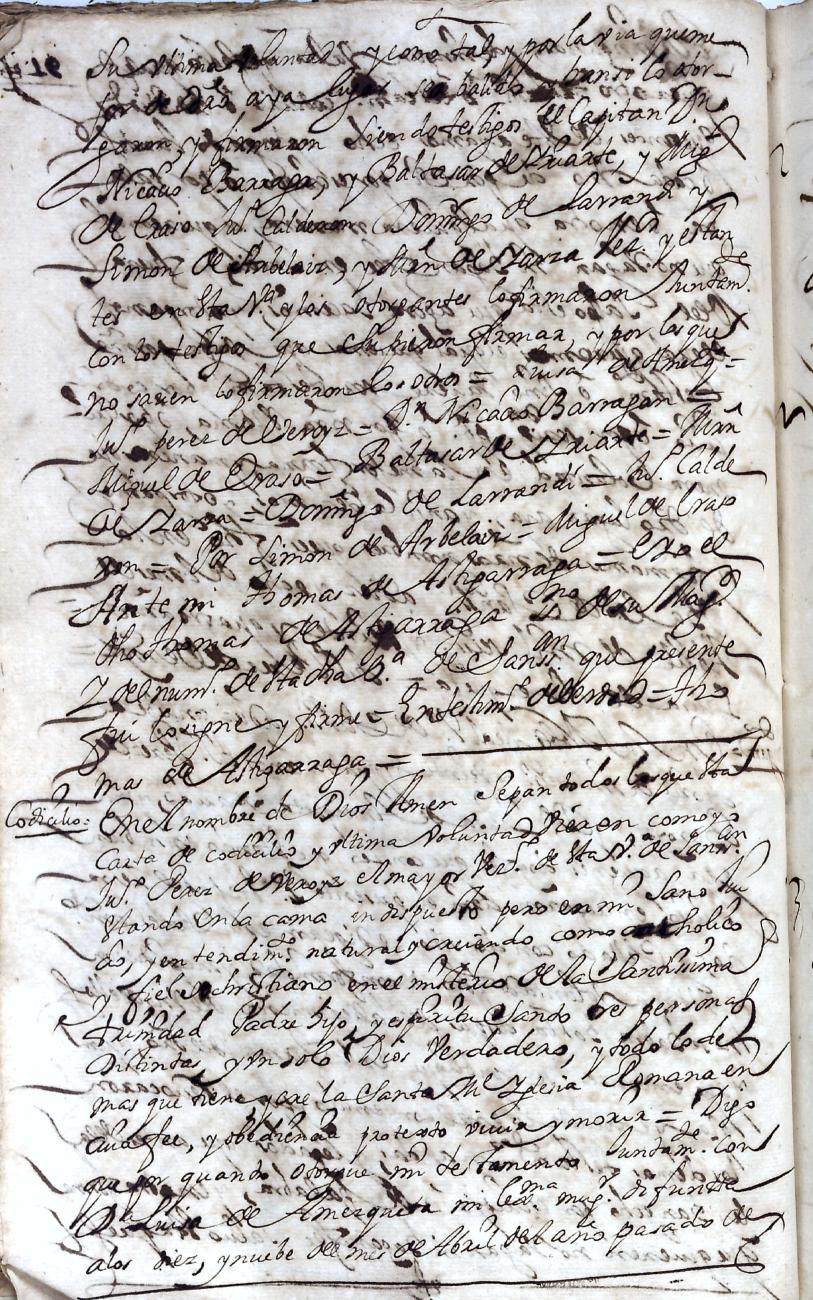 Su ultima voluntad y como tal, y por la via que me
jor de dro aya lugar sea balido y transi lo otor
garon, y firmaron siendo testigos el Capitan Dn
Nicacio Barragan, y Baltasar de Yriarte, y Migl
de Craso Jul Calderon Domingo de Larrandi y
Simon de Arbelaiz, y Mrn de Yarza Vezos y estan
tes en sta Va y los otorgantes lo firmaron Juntamte
con los testigos que supieron firmar, y por los que
no saven lo firmaron los otros = Luisa de Amezqta =
Juo perez de Veroyz = Dn Nicacio Barragan =
Miguel de Oraso = Baltasar de Yriarte = Mrn
de Yarza = Domingo de Larrandi = Juo Calde
ron = Por Simon de Arbelaiz = Miguel de Craso
Ante mi Thomas de Astigarraga = E yo el
dho Thomas de Astigarraga sno de su Magd
y del numo de sta dha Va de Sanssan que presente
fui lo signe y firme = En testimo de verdad = Tho
mas de Astigarraga =
Codicilio = En el nombre de Dios Amen Sepan todos los que sta
Carta de codicilio y ultima voluntad vieren como yo
Juo Perez de Veroyz el mayor Vezo de sta Va de Sanssan
stando en la cama indispuesto pero en mi sano Jui
cio, y entendimto natural y creiendo como catholico
y fiel christiano en el misterio de la Santissima
trinidad Padre hijo, y espiritu Sancto tres personas
distintas, y un solo Dios Verdadero, y todo lo de
mas que tiene y cree la Santa Me Yglesia Romana en
cuia fee, y obediencia protexto vivir y morir = Digo
que por quanto otorgue mi testamento Juntamte con
Da Luisa de Amezqueta mi lexma mugr difunta
a los diez, y nuebe del mes de Abril del año pasado de